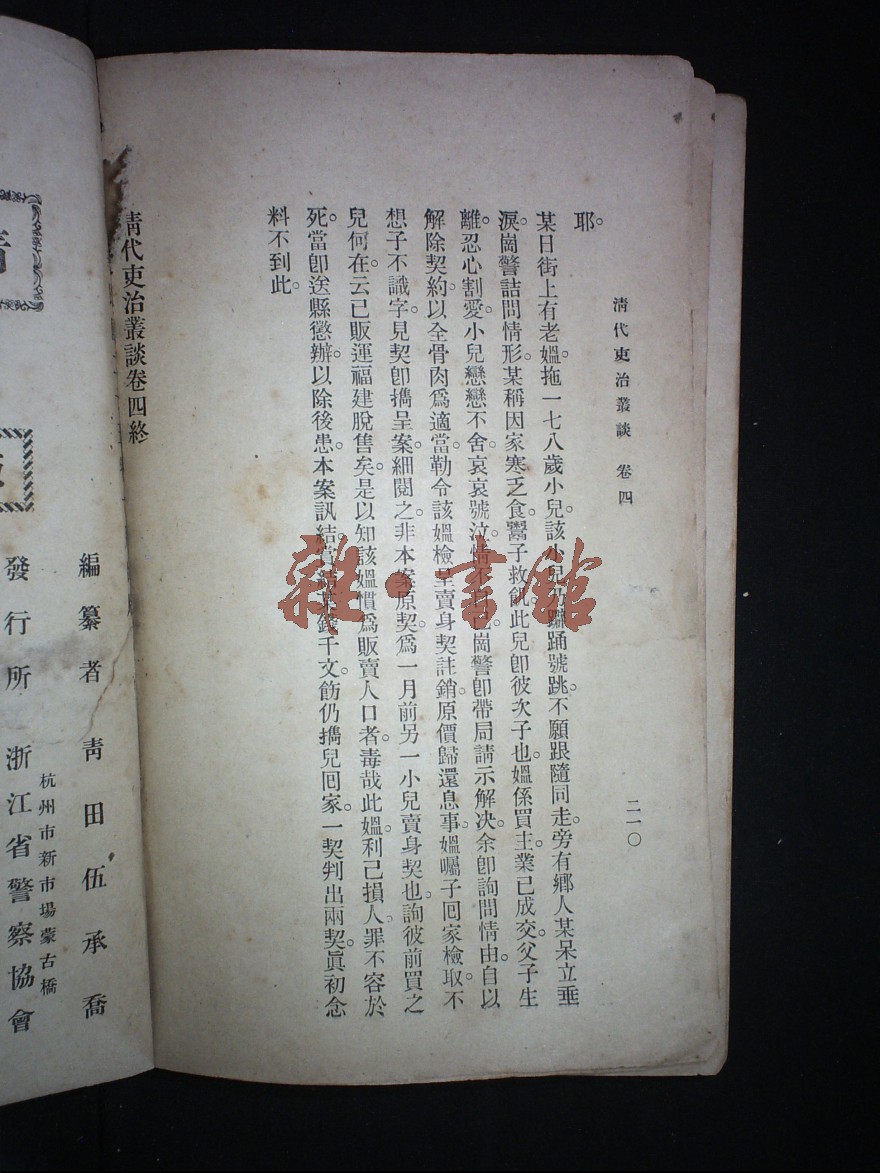 清代吏治叢談 卷四
二一〇
耶。
某日街上有老媼。拖一七八歲小兒。該小兒仍躃踊號跳。不願跟隨同走。旁有鄉人某呆立垂
淚。崗警詰問情形。某稱因家寒乏食。鬻子救飢。此兒卽彼次子也。媼係買主。業已成交。父子生
離。忍心割愛。小兒戀戀不舍。哀哀號泣。情不自已。崗警卽帶局請示解決。余卽詢問情由。自以
解除契約。以全骨肉爲適當。勒令該媼檢呈賣身契註銷。原價歸還息事。媼囑子回家檢取。不
想子不識字。見契卽携呈案。細閱之。非本案原契。爲一月前另一小兒賣身契也。詢彼前買之
兒何在。云已販運福建脫售矣。是以知該媼慣爲販賣人口者。毒哉此媼。利己損人。罪不容於
死。當卽送縣懲辦。以除後患。本案訊結。賞給某錢千文。飭仍携兒回家。一契判出兩契。眞初念
料不到此。
清代吏治叢談卷四終
編纂者 青田伍承喬
杭州市新市場蒙古橋
發行所 浙江省警察協會
雜·書館